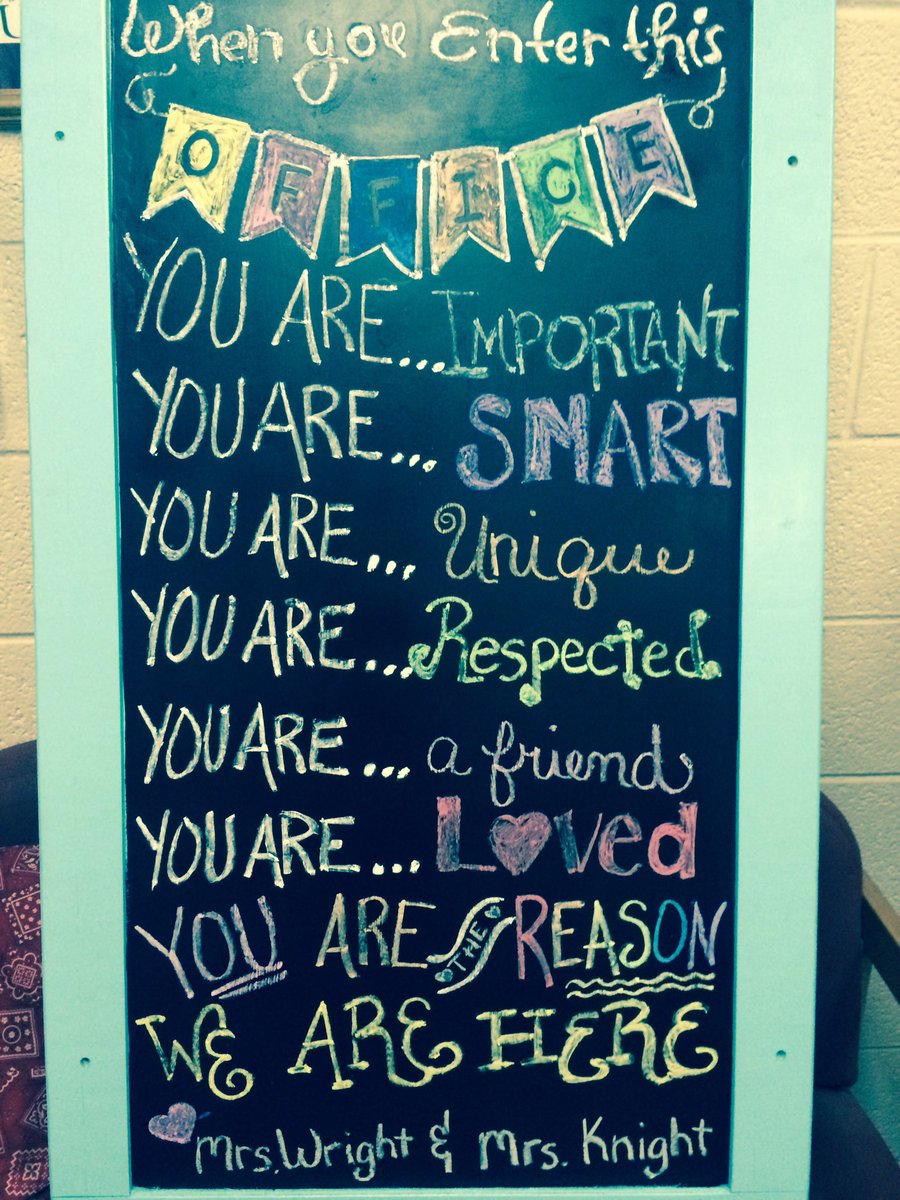 When you Enter this
OFFICE
YOU ARE... IMPORTANT
YOU ARE... SMART
YOU ARE... Unique
YOU ARE... Respected
YOU ARE... a friend
YOU ARE... Loved
YOU ARE THE REASON
WE ARE HERE
Mrs. Wright & Mrs. Knight